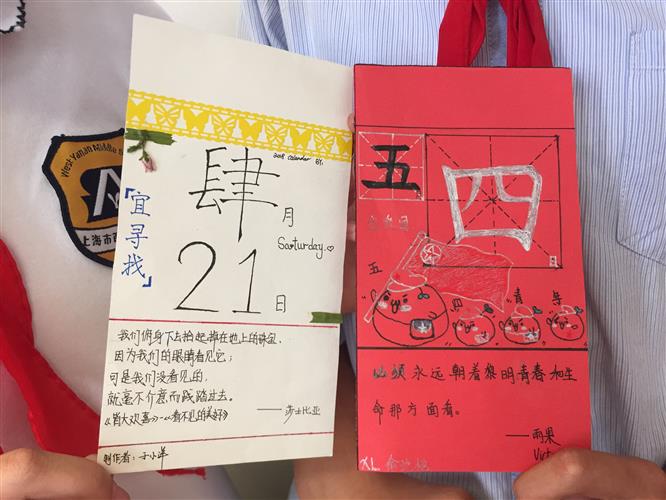 West Yanan Middle
上海市
2018 calendar BY:
肆
月
Saturday
宜寻找
21
日
我们俯身下去拾起掉在地上的珠宝,
因为我们的眼睛看见它;
可是我们没看见的,
就毫不介意而践踏过去。
《皆大欢喜》-《看不见的美好》
——莎士比亚
制作者:于小洋
五
四
五
四
青
年
必须永远朝着黎明青春和生
命那方面看。
——雨果
Vict